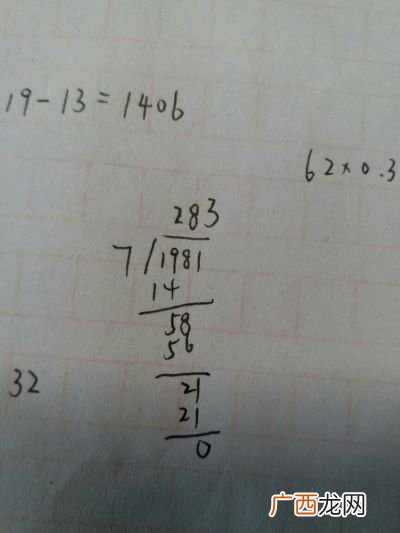 19-13=1406
62×0.3
283
7/1981
14
58
56
21
32
21
0
广西龙网